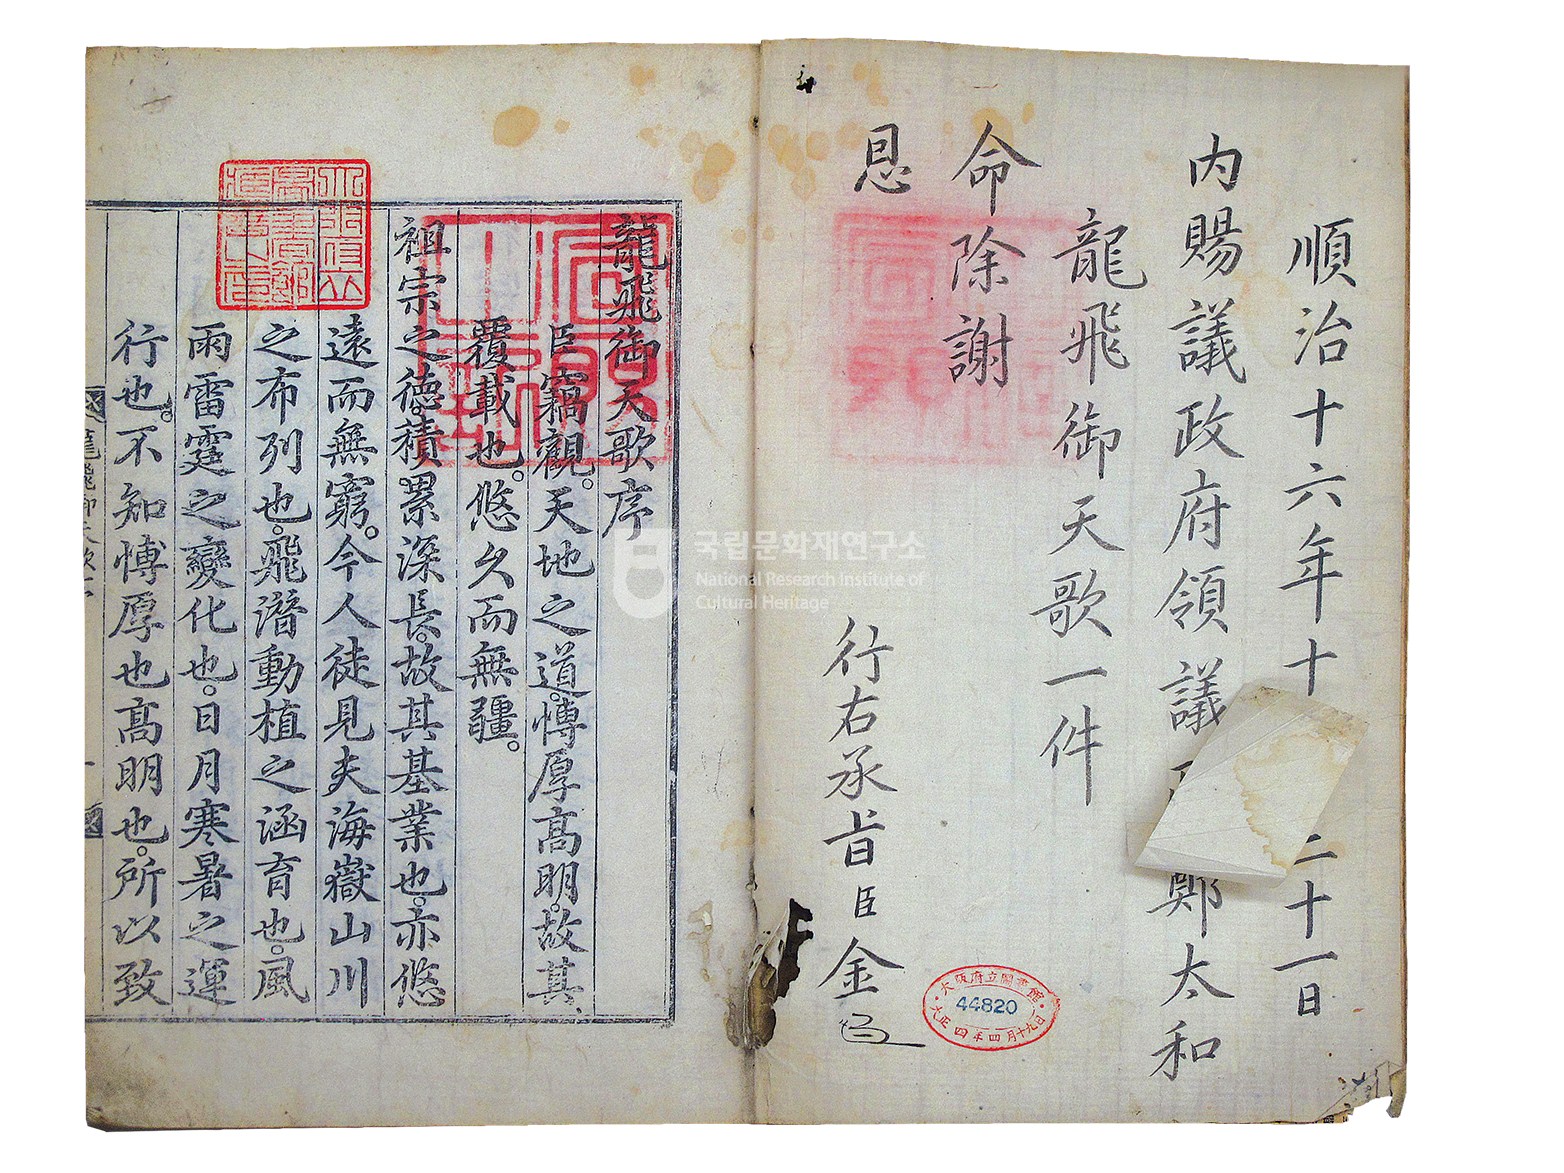 順治十六年十二十一日
內賜議政府領議鄭太和
龍飛御天歌一件
命除謝
恩
行右承旨臣金
大阪府立圖書館
44820
大正四年四月十九日
龍飛御天歌序
臣竊觀。天地之道。愽厚高明。故其
覆載也。悠久而無疆。
祖宗之德。積累深長。故其基業也。亦悠
遠而無窮。今人徒見夫海嶽山川
之布列也。飛潛動植之涵育也。風
雨雷霆之變化也。日月寒暑之運
行也。不知愽厚也高明也。所以致
龍飛御天歌序
一
국립문화재연구소
National Research Institute of
Cultural Heritage